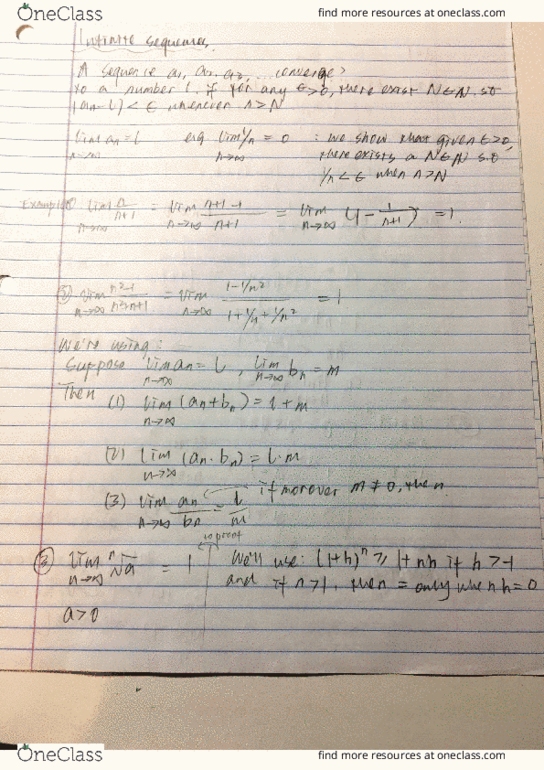 OneClass find more resources at oneclass.com
Infinite sequences.
A sequence a₁, a₂, a₃, ... converges
to a number l, if for any ε>0, there exist N∈ℕ s.o
|an-l| < ε whenever n>N
lim an = l e.g lim 1/n = 0 : we show that given ε>0,
n→∞ n→∞ there exists a N∈ℕ s.o
1/n < ε when n>N
Example ① lim n/n+1 = lim n+1-1/n+1 = lim (1 - 1/n+1) = 1.
n→∞ n→∞ n→∞
② lim n²-1/n²+n+1 = lim 1-1/n²/1+1/n+1/n² = 1
n→∞ n→∞
We're using:
Suppose lim an = L, lim bn = m
n→∞ n→∞
Then
(1) lim (an+bn) = l+m
n→∞
(2) lim (an·bn) = l·m
n→∞
(3) lim an/bn = l/m if morover m ≠ 0, then
n→∞
to prove
③ lim ⁿ√a = 1 We'll use: (1+h)ⁿ ≥ 1+nh if h>-1
n→∞ and if n>1, then = only when h=0
a>0
OneClass find more resources at oneclass.com